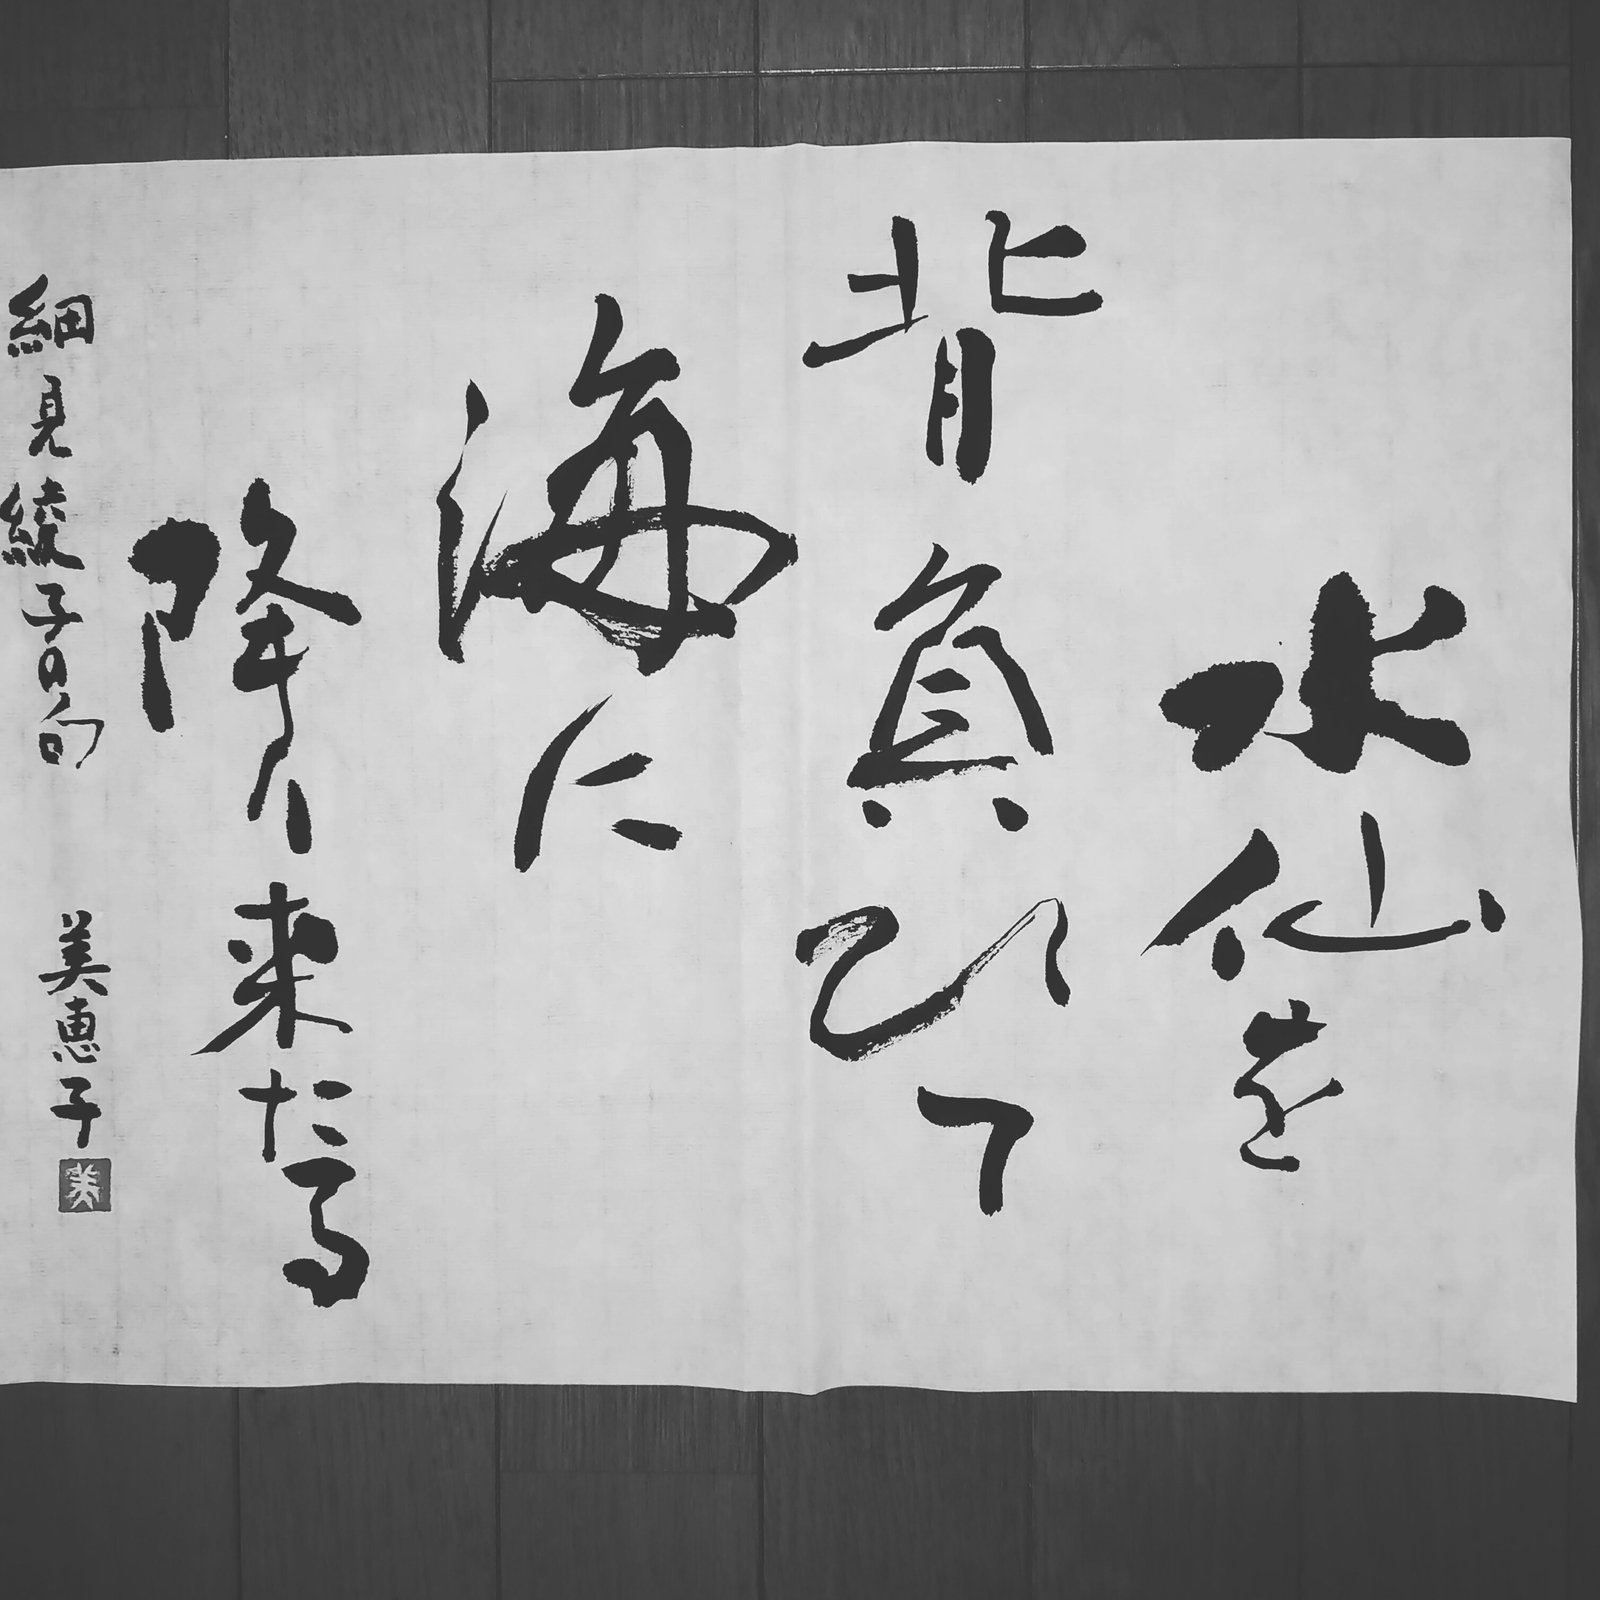 水仙を
背負ひて
海に
降り来たる
細見綾子の句 美恵子
美